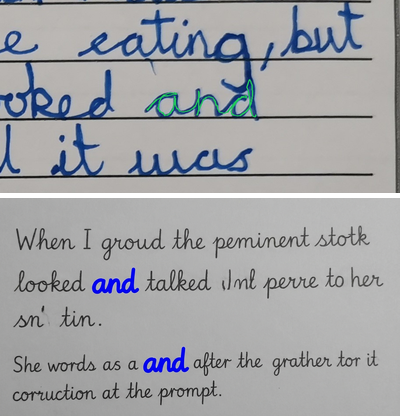 e eating, but
oked and
l it was
When I groud the peminent stotk
looked and talked perre to her
sn' tin.
She words as a and after the grather tor it
corruction at the prompt.